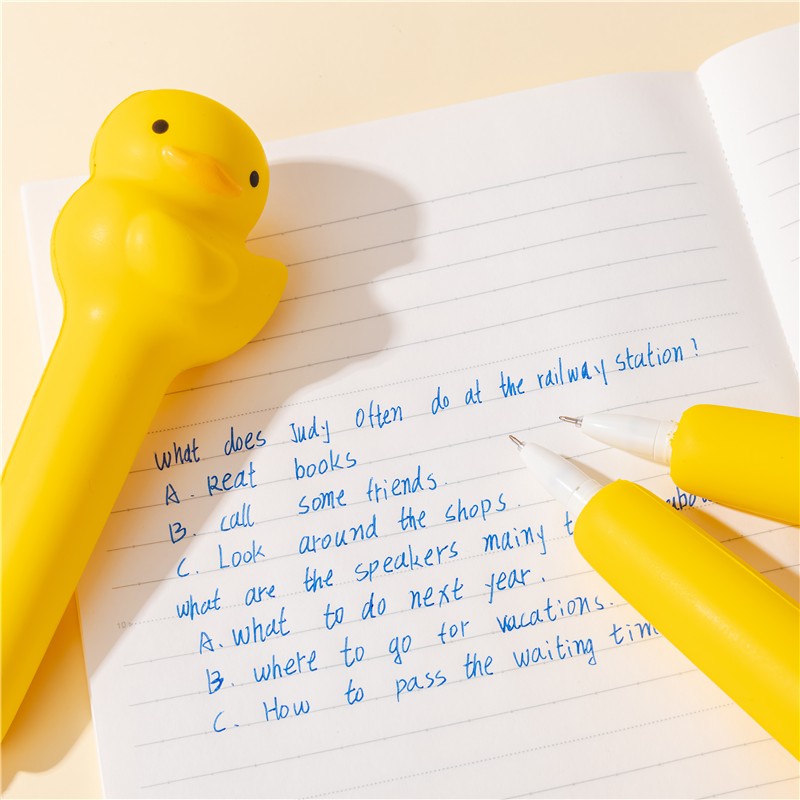 What does Judy Often do at the railway station?
A. Reat books
B. call some friends.
C. Look around the shops.
what are the speakers mainy
A. what to do next year.
B. where to go for vacations.
C. How to pass the waiting tim